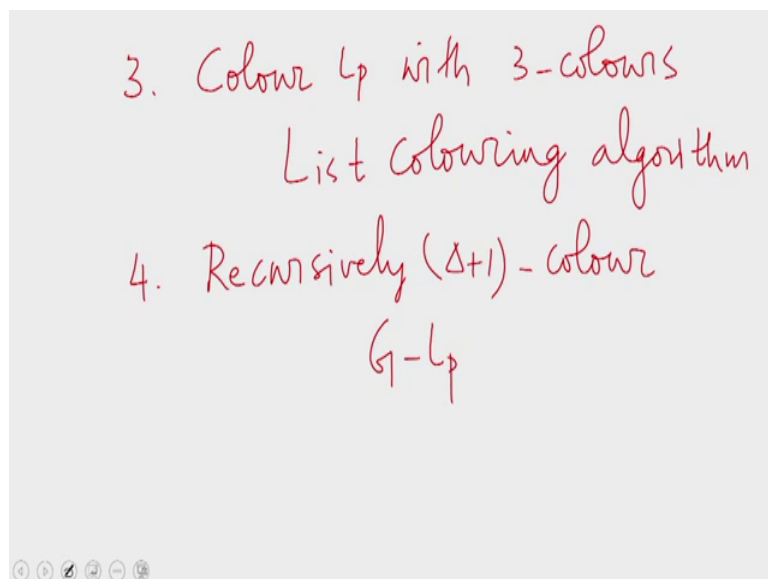 3. Colour Lp with 3-colours
List colouring algorithm
4. Recursively (Δ+1)-colour
G-Lp